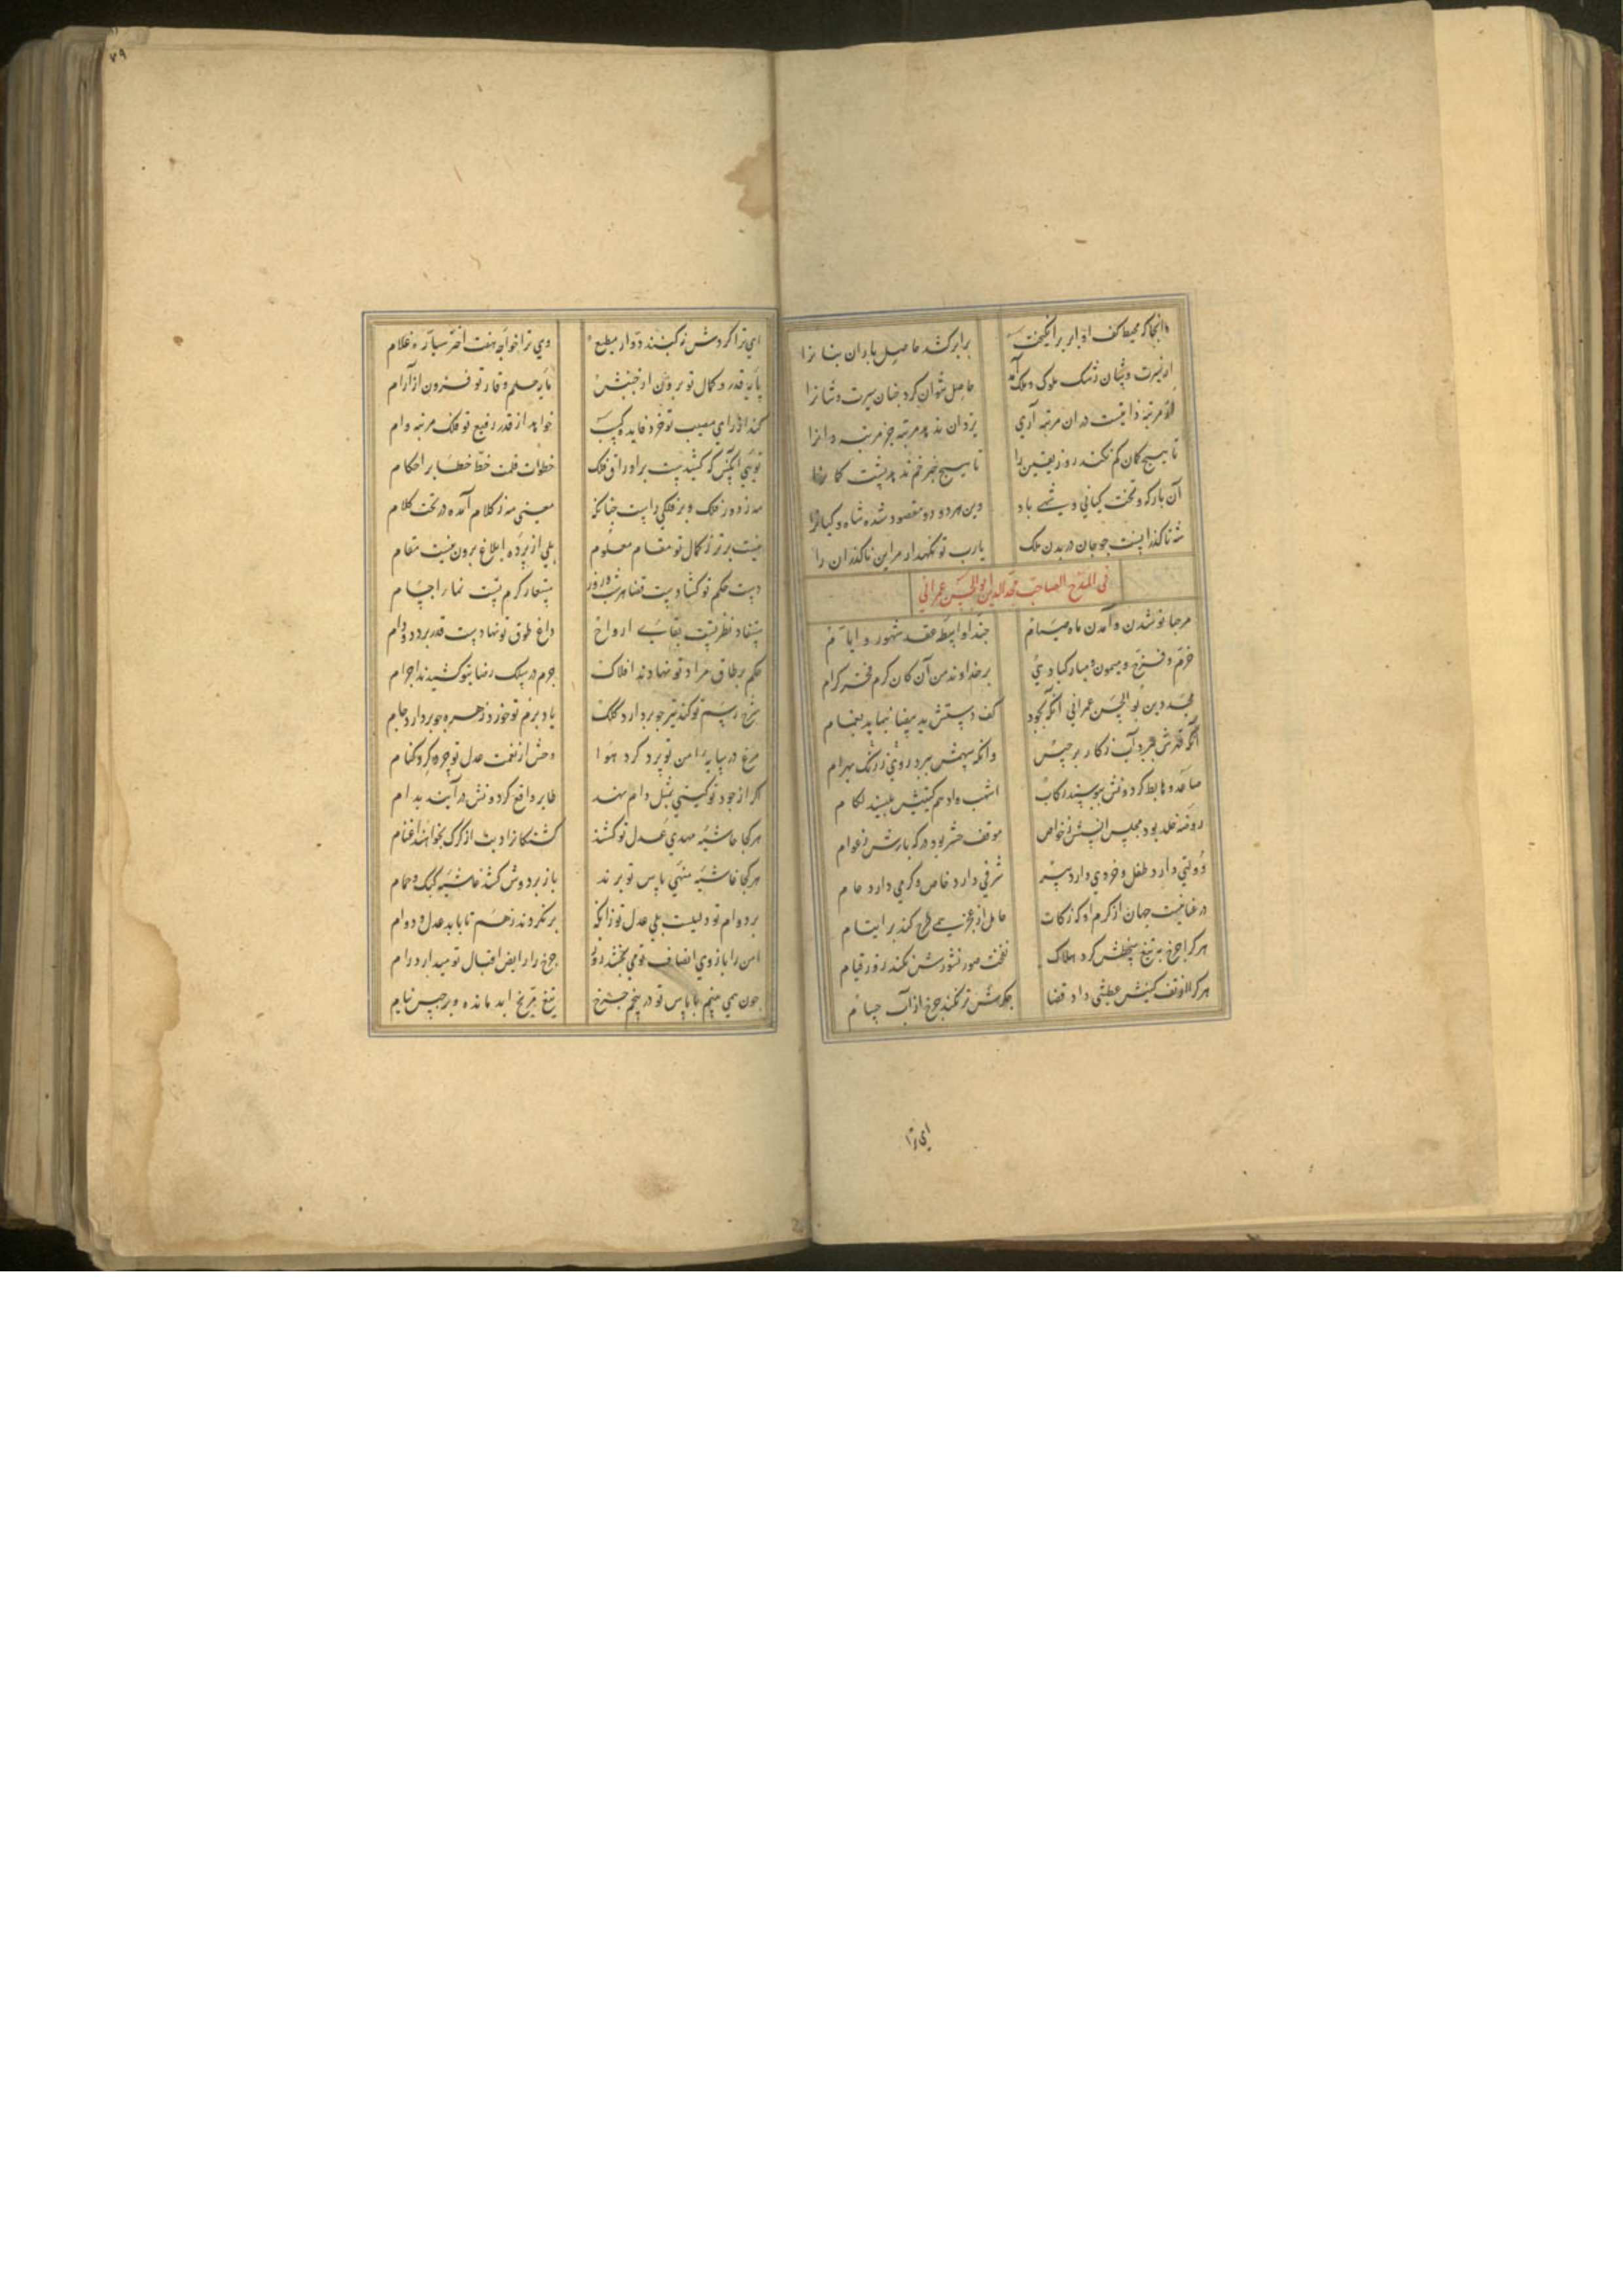 آنجا که محیط کف او ابر برانگیخت برابر کشد حاصل باران بنانرا
از سیرت و سان رشک ملوک و ملک آمد حاصل نتوان کرد چنان سیرت و سانرا
او مرتبه دانیست در ان مرتبه آری یزدان ندهد مرتبه جز مرتبه دانرا
تا هیچ کمان کم نکند روز یقین را تا هیچ خبر خم ندهد پشت کمانرا
آن بارکه و تخت کیانی و شهی باد وین هر دو دو مقصود شده شاه و کیانرا
شه ناکذرانست جو جان در بدن ملک یارب تو نکهدار مر این ناکذران را
فی المدح الصاحب مجدالدین ابوالحسن عمرانی
مرحبا نو شدن و آمدن ماه صیام حبذا واسطه عقد شهور و ایام
خرم و فرخ و میمون و مبارک بادی بر خداوند من آن کان کرم فخر کرام
مجد دین بوالحسن عمرانی آنکه بجود کف دستش ید بیضا بنماید بغمام
آنکه قدرش ببرد آب ز کار برجیس وانکه سهمش ببرد روی ز رنگ بهرام
صاعد و هابط کردونش ببوسند رکاب اشهب و ادهم کیتیش ببیند لکام
روضه خلد بود مجلس انسش ز خواص موقف حشر بود درکه بارش ز عوام
دولتی دارد طفل و خردی دارد پیر شرفی دارد خاص و کرمی دارد عام
در جهان از کرم او که زکات عامل از عجز همی طرح کند بر ایتام
هر کرا جرخ به تیغ سخطش کرد هلاک نفخت صور نشورش نکند روز قیام
هر کرا موقف کینش عطشی داد قضا جکرش تر نکند جرخ از آب حسام
ای ترا
۷۹
ای ترا کردش نه کنبد دوار مطیع وی ترا خواجه هفت اختر سیاره غلام
پایه قدر و کمال تو برون از جنبش مایه حلم و وقار تو فزون از آرام
کند از رای مصیب تو خرد فایده کسب خواهد از قدر رفیع تو فلک مرتبه وام
تویی آنکس که کشیدست بر اوراق فلک خطوات قلمت خط خطا بر احکام
نه ز دور فلک و بر فلکی راست چنانک معنی نه ز کلام آمده در تحت کلام
نیست برتر ز کمال تو مقام معلوم بلی از پرده ابلاغ برون نیست مقام
دست حکم تو کشادست قضا بر شب و روز داغ طوق تو نهادست قدر بر دد و دام
مستفاد نظر تست بقای ارواح مستعار کرم تست نما را اجسام
حکم بر طاق مراد تو نهادند افلاک جرم در سلک رضا تو کشیدند اجرام
نسخ رسم تو کند تیر جو بردارد کلک یاد بزم تو خورد زهره جو بردارد جام
مرغ در سایه امن تو پرد کرد هوا وحش از نعمت عدل تو چرد کرد کنام
اکر از جود تو کیتی بمثل دام نهد طایر و واقع کردونش در آیند بدام
هر کجا حاشیه مهدی عدل تو کشند کشتکانرا دیت از کرک بخواهند اغنام
هر کجا غاشیه منهی باس تو برند باز بر دوش کشد غاشیه کبک و حمام
بر دوام تو دلیلست بلی عدل تو زانکه برنکردند ز هم تا باباد عدل و دوام
امن را بازوی انصاف تو می بخشد زور جرخ را رایض اقبال تو میدارد رام
چون همی بینم با باس تو در پنجم چرخ تیغ مریخ ابد مانده و برجیس نیام